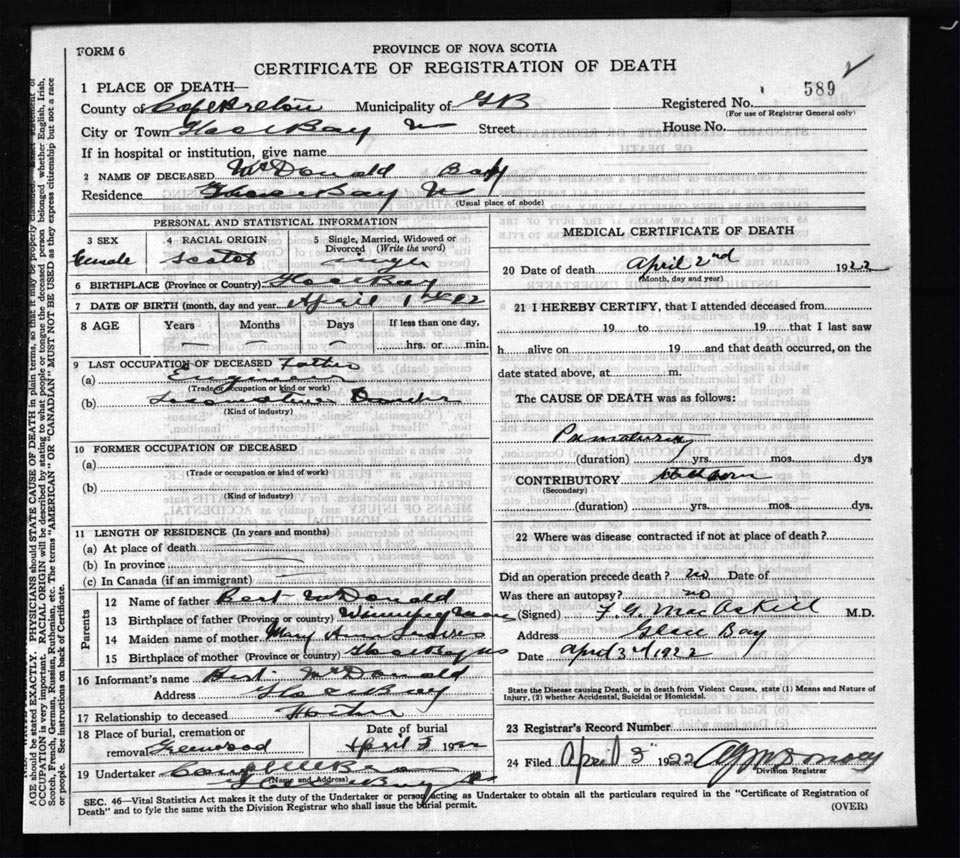 FORM 6
PROVINCE OF NOVA SCOTIA
CERTIFICATE OF REGISTRATION OF DEATH
589
1 PLACE OF DEATH—
County of Cape Breton Municipality of G B
Registered No.
(For use of Registrar General only)
City or Town Glace Bay Ns Street
House No.
If in hospital or institution, give name
2 NAME OF DECEASED McDonald Baby
Residence Glace Bay Ns
(Usual place of abode)
PERSONAL AND STATISTICAL INFORMATION
3 SEX
Female
4 RACIAL ORIGIN
Scotch
5 Single, Married, Widowed or Divorced (Write the word)
Single
6 BIRTHPLACE (Province or Country) Glace Bay
7 DATE OF BIRTH (month, day and year) April 1st
8 AGE Years Months Days If less than one day,
hrs. or min.
9 LAST OCCUPATION OF DECEASED Father
(a)
(Trade occupation or kind or work)
(b)
(Kind of industry)
10 FORMER OCCUPATION OF DECEASED
(a)
(Trade or occupation or kind of work)
(b)
(Kind of industry)
11 LENGTH OF RESIDENCE (In years and months)
(a) At place of death
(b) In province
(c) In Canada (if an immigrant)
Parents
12 Name of father Bert McDonald
13 Birthplace of father (Province or country) Winnipeg Man
14 Maiden name of mother Mary Ann
15 Birthplace of mother (Province or country) Glace Bay Ns
16 Informant's name Bert McDonald
Address Glace Bay
17 Relationship to deceased Father
18 Place of burial, cremation or removal Greenwood
Date of burial
April 3 1922
19 Undertaker
(Name and Address)
MEDICAL CERTIFICATE OF DEATH
20 Date of death April 2nd 1922
(Month, day and year)
21 I HEREBY CERTIFY, that I attended deceased from
19 to 19 that I last saw
h alive on 19 and that death occurred, on the
date stated above, at m.
The CAUSE OF DEATH was as follows:
Prematurity
(duration) yrs. mos. dys
CONTRIBUTORY Stillborn
(Secondary)
(duration) yrs. mos. dys.
22 Where was disease contracted if not at place of death?
Did an operation precede death? no Date of
Was there an autopsy? no
(Signed) F G. MacAskill M.D.
Address Glace Bay
Date April 3rd 1922
State the Disease causing Death, or in death from Violent Causes, state (1) Means and Nature of
Injury, (2) whether Accidental, Suicidal or Homicidal.
23 Registrar's Record Number
24 Filed April 3 1922
Division Registrar
SEC. 46—Vital Statistics Act makes it the duty of the Undertaker or person acting as Undertaker to obtain all the particulars required in the "Certificate of Registration of
Death" and to fyle the same with the Division Registrar who shall issue the burial permit.
(OVER)
AGE should be stated EXACTLY. PHYSICIANS should STATE CAUSE OF DEATH in plain terms, so that it may be properly
OCCUPATION is very important. RACIAL ORIGIN will be described by stating to what people or tongue the deceased person belonged whether English, Irish,
Scotch, French, German, Russian, Ruthenian, etc. The terms "AMERICAN" OR "CANADIAN" MUST NOT BE USED as they express citizenship but not a race
or people. See instructions on back of Certificate.